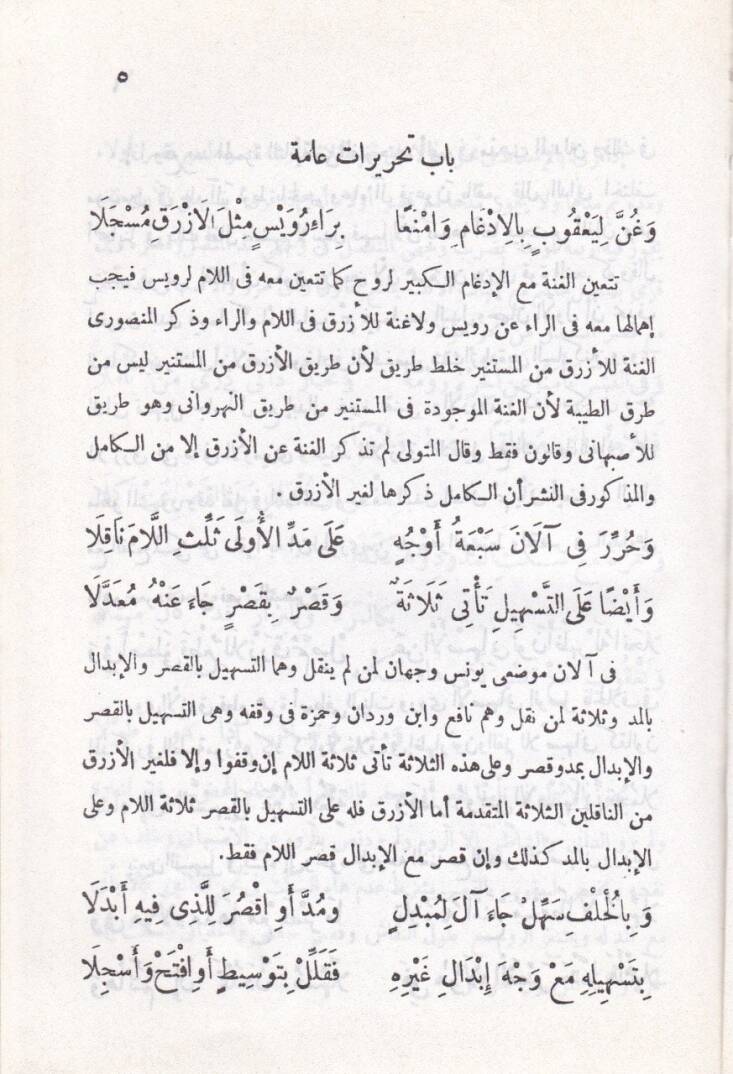 ٥
باب تحريرات عامة
وَغُنَّ لِيَعْقُوبٍ بِالِادْغَامِ وَامْنَعًا بِرَاءِ رُوَيْسٍ مِثْلَ الَازْرَقِ مُسْجَلَا
تتعين الغنة مع الإدغام الكبير لروح كما تتعين معه فى اللام لرويس فيجب
إهمالها معه فى الراء عن رويس ولاغنة للأزرق فى اللام والراء وذكر المنصورى
الغنة للأزرق من المستنير خلط طريق لأن طريق الأزرق من المستنير ليس من
طرق الطيبة لأن الغنة الموجودة فى المستنير من طريق النهروانى وهو طريق
للأصبهانى وقالون فقط وقال المتولى لم تذكر الغنة عن الأزرق إلا من الكامل
والمذكور فى النشر أن الكامل ذكرها لغير الأزرق .
وَحُرِّرَ فِى آلَانَ سَبْعَةُ أَوْجُهٍ عَلَى مَدِّ الْأُولَى ثَلِّثِ اللَّامَ نَاقِلَا
وَأَيْضًا عَلَى التَّسْهِيلِ تَأْتِى ثَلَاثَةٌ وَقَصْرٌ بِقَصْرٍ جَاءَ عَنْهُ مُعَدَّلَا
فى آلان موضعى يونس وجهان لمن لم ينقل وهما التسهيل بالقصر والإبدال
بالمد وثلاثة لمن نقل وهم نافع وابن وردان وحمزة فى وقفه وهى التسهيل بالقصر
والإبدال بمد وقصر وعلى هذه الثلاثة تأتى ثلاثة اللام إن وقفوا وإلا فلغير الأزرق
من الناقلين الثلاثة المتقدمة أما الأزرق فله على التسهيل بالقصر ثلاثة اللام وعلى
الإبدال بالمد كذلك وإن قصر مع الإبدال قصر اللام فقط.
وَبِالْخُلْفِ سَهِّلْ جَاءَ آلَ لِمُبْدِلٍ وَمُدَّ أَوِ اقْصُرْ لِلَّذِى فِيهِ أَبْدَلَا
بِتَسْهِيلِهِ مَعْ وَجْهِ إِبْدَالِ غَيْرِهِ فَقَلِّلْ بِتَوْسِيطٍ أَوِ افْتَحْ وَأَسْجِلَا